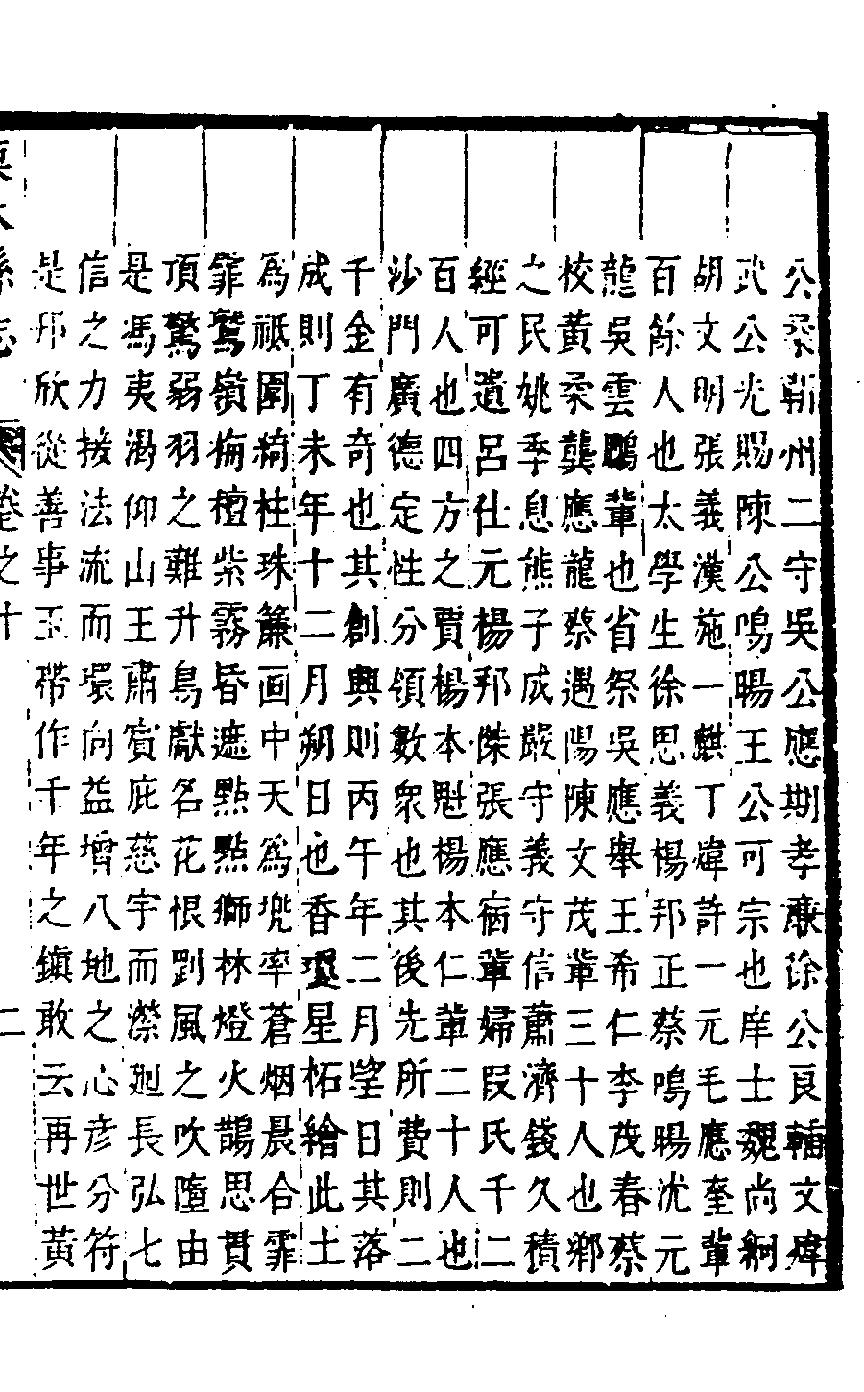 公桑蘄州二守吳公應期孝廉徐公良輔文煒
武公光賜陳公鳴暘王公可宗也庠士魏尚綱
胡文明張義漢施一麒丁煒許一元毛應奎輩
百餘人也太學生徐思義楊邦正蔡鳴暘沈元
龍吳雲鵬輩也省祭吳應舉王希仁李茂春蔡
校黃柔龔應龍蔡遇陽陳文茂輩三十人也鄉
之民姚季息熊子成嚴守義守信蕭濟錢久積
經可遺呂仕元楊邦傑張應病輩婦段氏千二
百人也四方之賈楊本魁楊本仁輩二十人也
沙門廣德定性分領數衆也其後先所費則二
千金有奇也其創興則丙午年二月望日其落
成則丁未年十二月朔日也香瓔星柘繪此土
為祗園綺柱珠簾画中天為兜率蒼烟晨合霏
霏鷲嶺栴檀紫霧昏遮點點獅林燈火鵲思貫
頂驚弱羽之難升鳥獻名花恨剛風之吹墮由
是馮夷渴仰山王肅賓庇慈宇而縈廻長弘七
信之力接法流而環向益增八地之心彥分符
是邦欣從善事玉帶作千年之鎮敢云再世黃
栗水縣志 卷之十 二